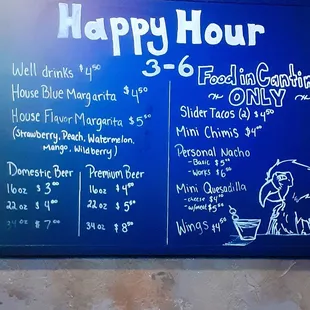 Happy Hour
3-6
Well drinks $4.50
House Blue Margarita $4.50
House Flavor Margarita $5.50
(Strawberry, Peach, Watermelon,
Mango, Wildberry)
Domestic Beer
16oz $3.00
22oz $4.00
34oz $7.00
Premium Beer
16oz $4.50
22oz $5.00
34oz $8.00
Food in Cantin
~ ONLY ~
Slider Tacos (2) $4.50
Mini Chimis $4.00
Personal Nacho
- Basic $5.00
- Works $6.00
Mini Quesadilla
- cheese $4.00
- w/meat $5.00
Wings $4.00